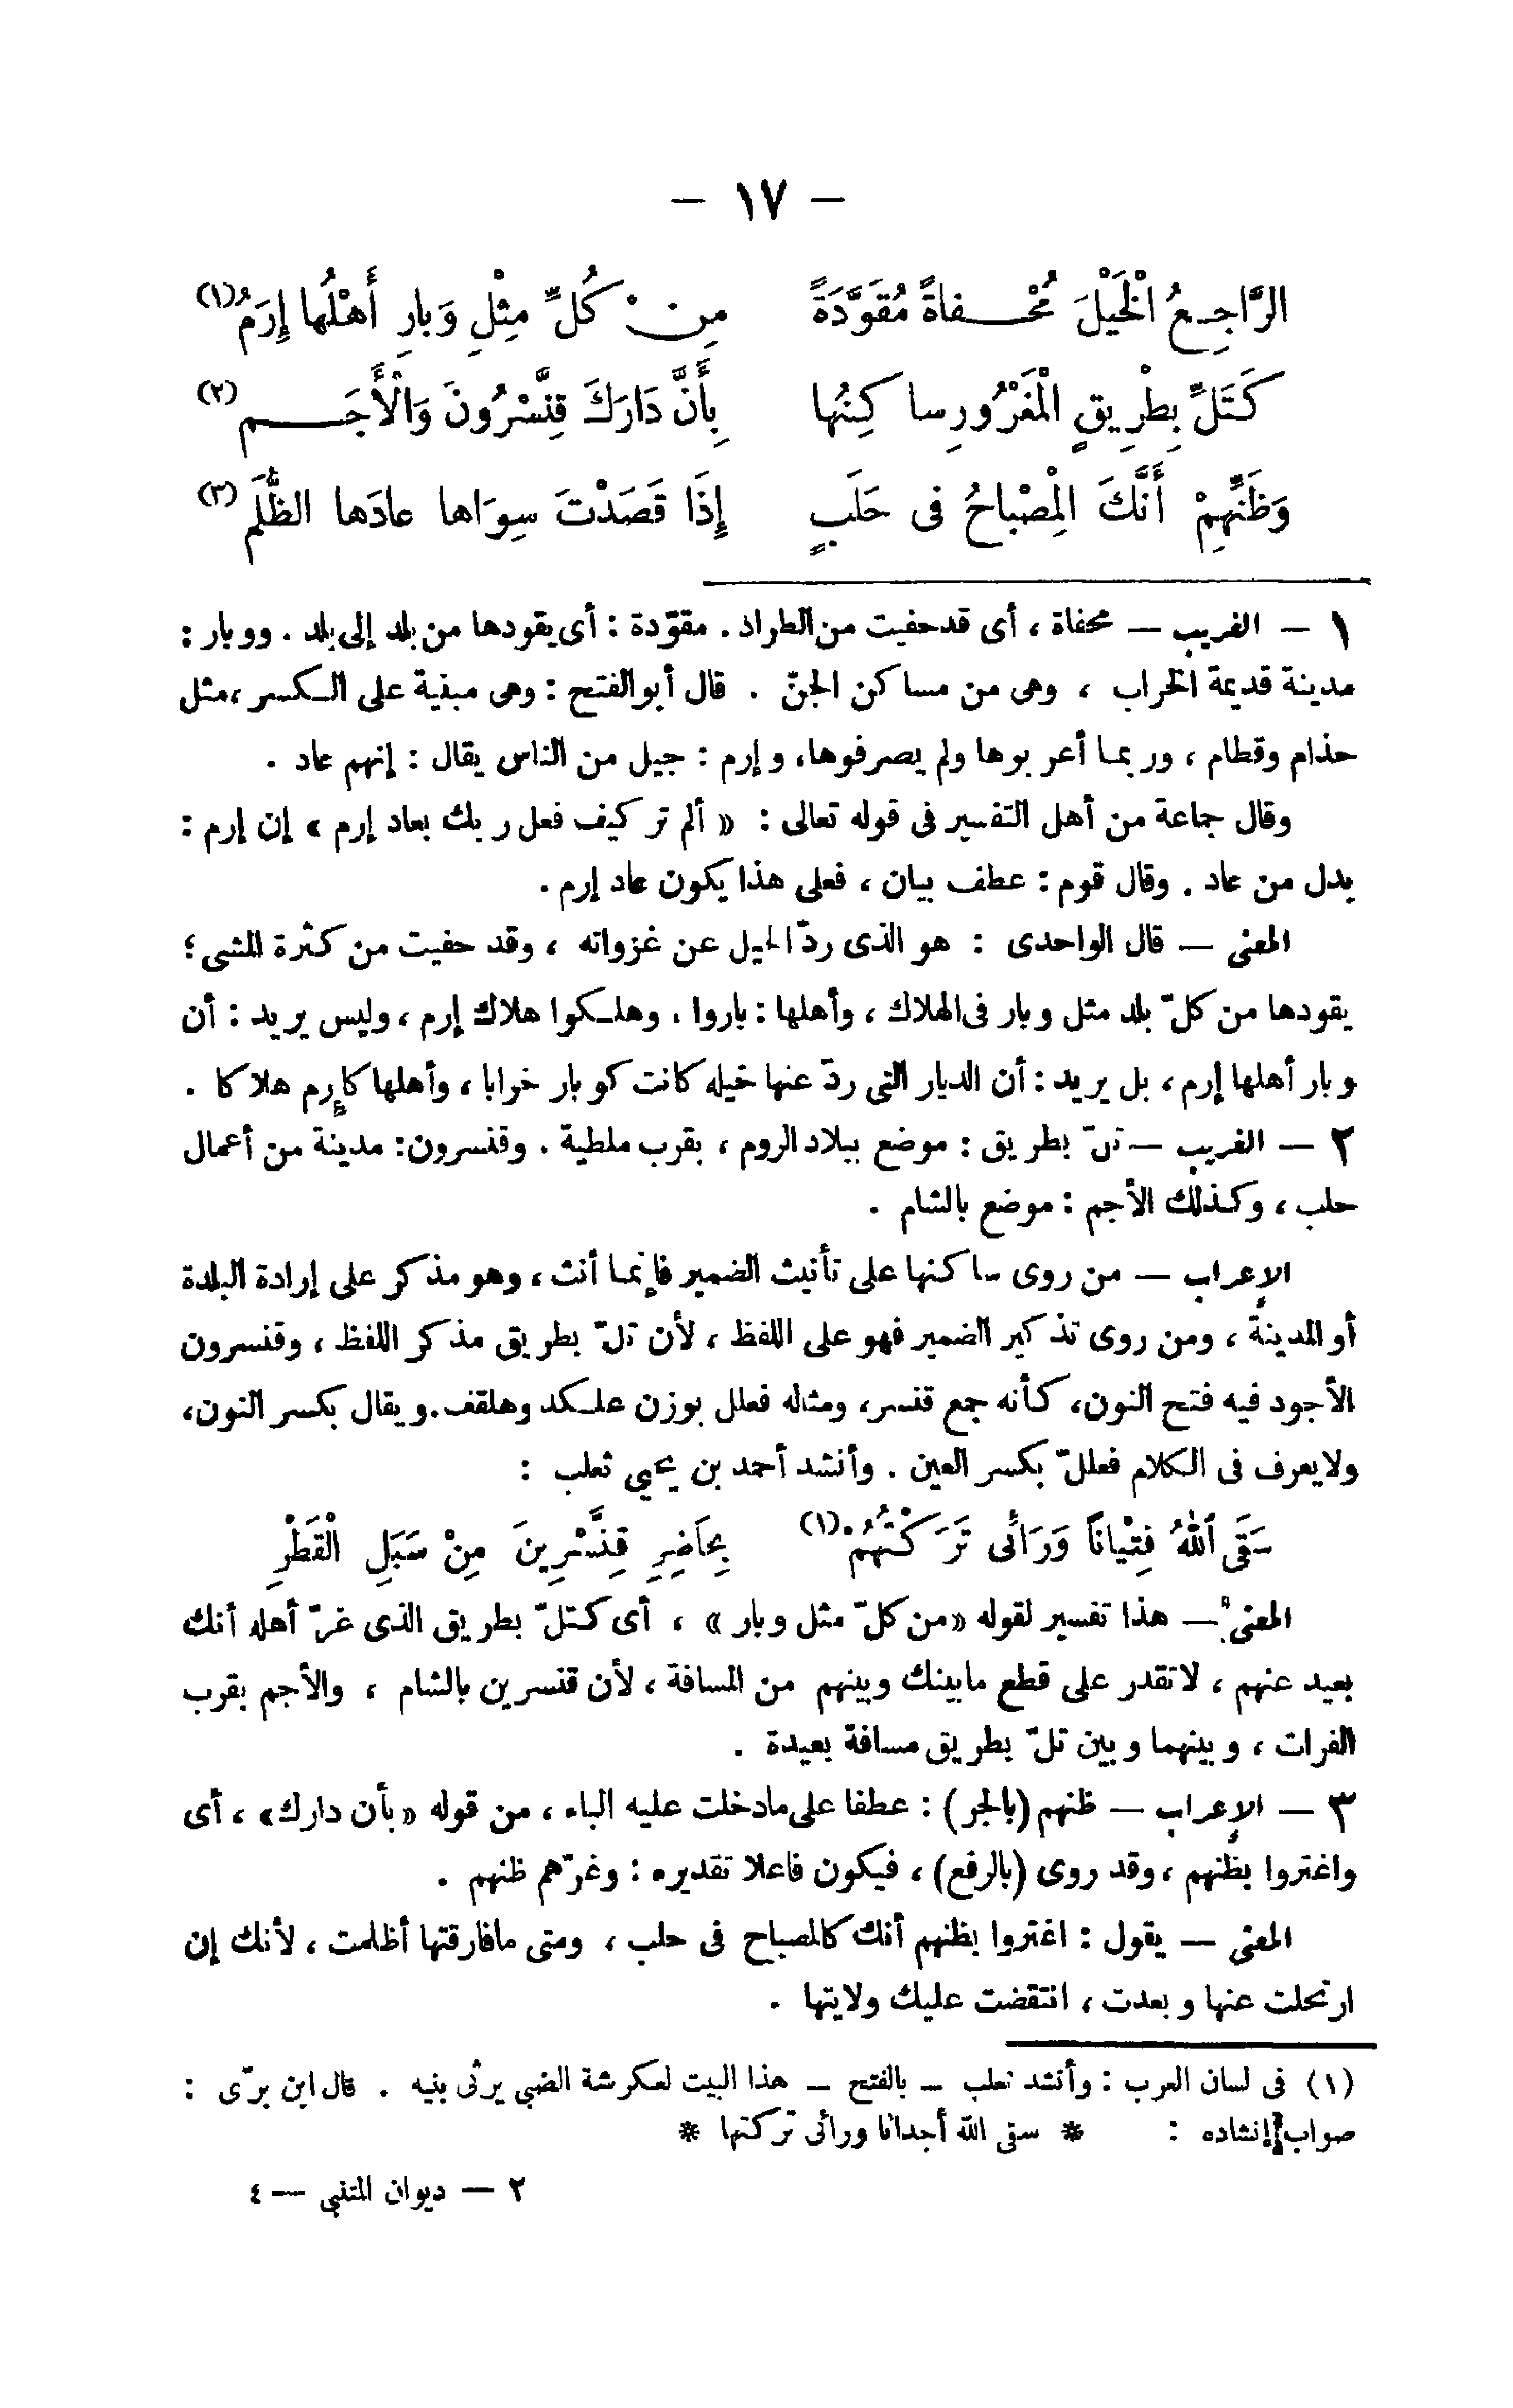 — ١٧ —
الرَّاجِعُ الْخَيْلَ مُحْفاةً مُقَوَّدَةً مِنْ كُلِّ مِثْلِ وَبارِ أَهْلُها إِرَمُ (١)
كَتَلِّ بِطْرِيقٍ الْمَغْرُورِ ساكِنُها بِأَنَّ دَارَكَ قِنَّسْرُونَ وَالْأَجَمُ (٢)
وَظَنِّهِمْ أَنَّكَ الْمِصْبَاحُ فى حَلَبٍ إِذَا قَصَدْتَ سِوَاها عادَها الظُّلَمُ (٣)
١ — الغريب — محفاة ، أى قد حفيت من الطراد . مقوّدة : أى يقودها من بلد إلى بلد . ووبار :
مدينة قديمة الخراب ، وهى من مساكن الجنّ . قال أبو الفتح : وهى مبنية على الكسر ، مثل
حذام وقطام ، وربما أعربوها ولم يصرفوها ، وإرم : جيل من الناس يقال : إنهم عاد .
وقال جماعة من أهل التفسير فى قوله تعالى : « ألم تر كيف فعل ربك بعاد إرم » إن إرم :
بدل من عاد . وقال قوم : عطف بيان ، فعلى هذا يكون عاد إرم .
المعنى — قال الواحدى : هو الذى ردّ الخيل عن غزواته ، وقد حفيت من كثرة المشى ؛
يقودها من كلّ بلد مثل وبار فى الهلاك ، وأهلها : باروا . وهلكوا هلاك إرم ، وليس يريد : أن
وبار أهلها إرم ، بل يريد : أن الديار التى ردّ عنها خيله كانت كوبار خرابا ، وأهلها كإرم هلاكا .
٢ — الغريب — تلّ بطريق : موضع ببلاد الروم ، بقرب ملطية . وقنسرون : مدينة من أعمال
حلب ، وكذلك الأجم : موضع بالشام .
الإعراب — من روى ساكنها على تأنيث الضمير فإنما أنث ، وهو مذكر على إرادة البلدة
أو المدينة ، ومن روى تذكير الضمير فهو على اللفظ ، لأن تلّ بطريق مذكر اللفظ ، وقنسرون
الأجود فيه فتح النون ، كأنه جمع قنسر ، ومثاله فعلل بوزن علكد وهلقف . ويقال بكسر النون ،
ولا يعرف فى الكلام فعللّ بكسر العين . وأنشد أحمد بن يحيي ثعلب :
سَقَى اللهُ فِتْياناً وَرَائى تَرَكْتُهُمْ (١) بِحَاضِرِ قِنَّسْرِينَ مِنْ سَبَلِ الْقَطْرِ
المعنى — هذا تفسير لقوله « من كلّ مثل وبار » ، أى كتلّ بطريق الذى غرّ أهله أنك
بعيد عنهم ، لا تقدر على قطع ما بينك وبينهم من المسافة ، لأن قنسرين بالشام ، والأجم بقرب
الفرات ، وبينهما وبين تلّ بطريق مسافة بعيدة .
٣ — الإعراب — ظنهم (بالجر) : عطفا على ما دخلت عليه الباء ، من قوله « بأن دارك » ، أى
واغتروا بظنهم ، وقد روى (بالرفع) ، فيكون فاعلا تقديره : وغرّهم ظنهم .
المعنى — يقول : اغتروا بظنهم أنك كالمصباح فى حلب ، ومتى ما فارقتها أظلمت ، لأنك إن
ارتحلت عنها وبعدت ، انتقضت عليك ولايتها .
(١) فى لسان العرب : وأنشد ثعلب — بالفتح — هذا البيت لعكرشة الضبي يرثى بنيه . قال ابن برّى :
صواب إنشاده : * سقى الله أجداثا ورائى تركتها *
٢ — ديوان المتنبى — ٤